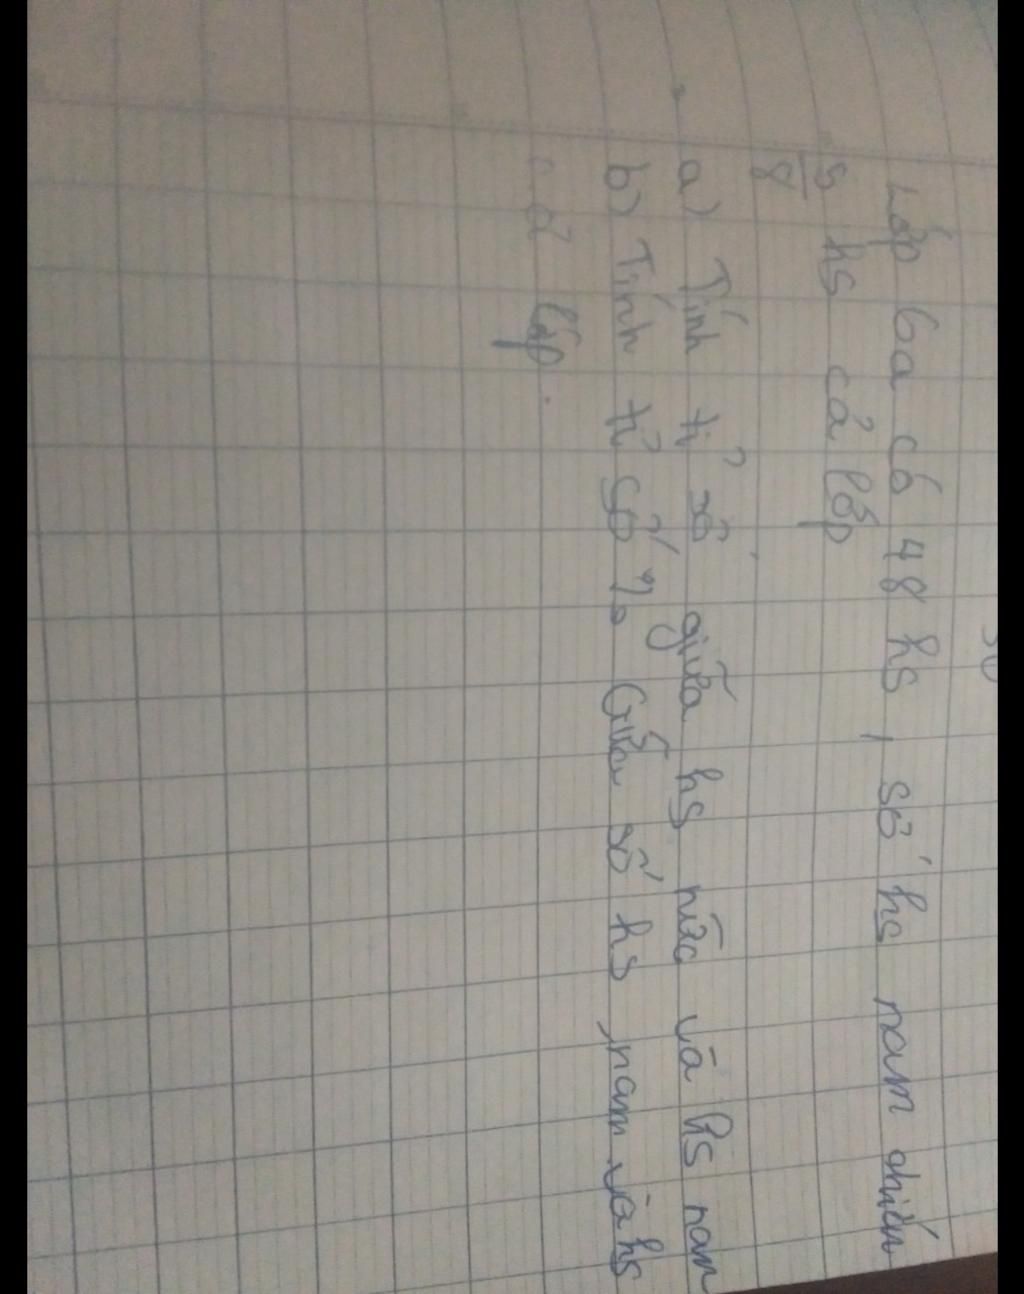 Lớp 6a có 48 hs, số hs nam chiếm
5/8 hs cả lớp
a) Tính tỉ số giữa hs nữ và hs nam
b) Tính tỉ số % Giữa số hs nam và hs
cả lớp.